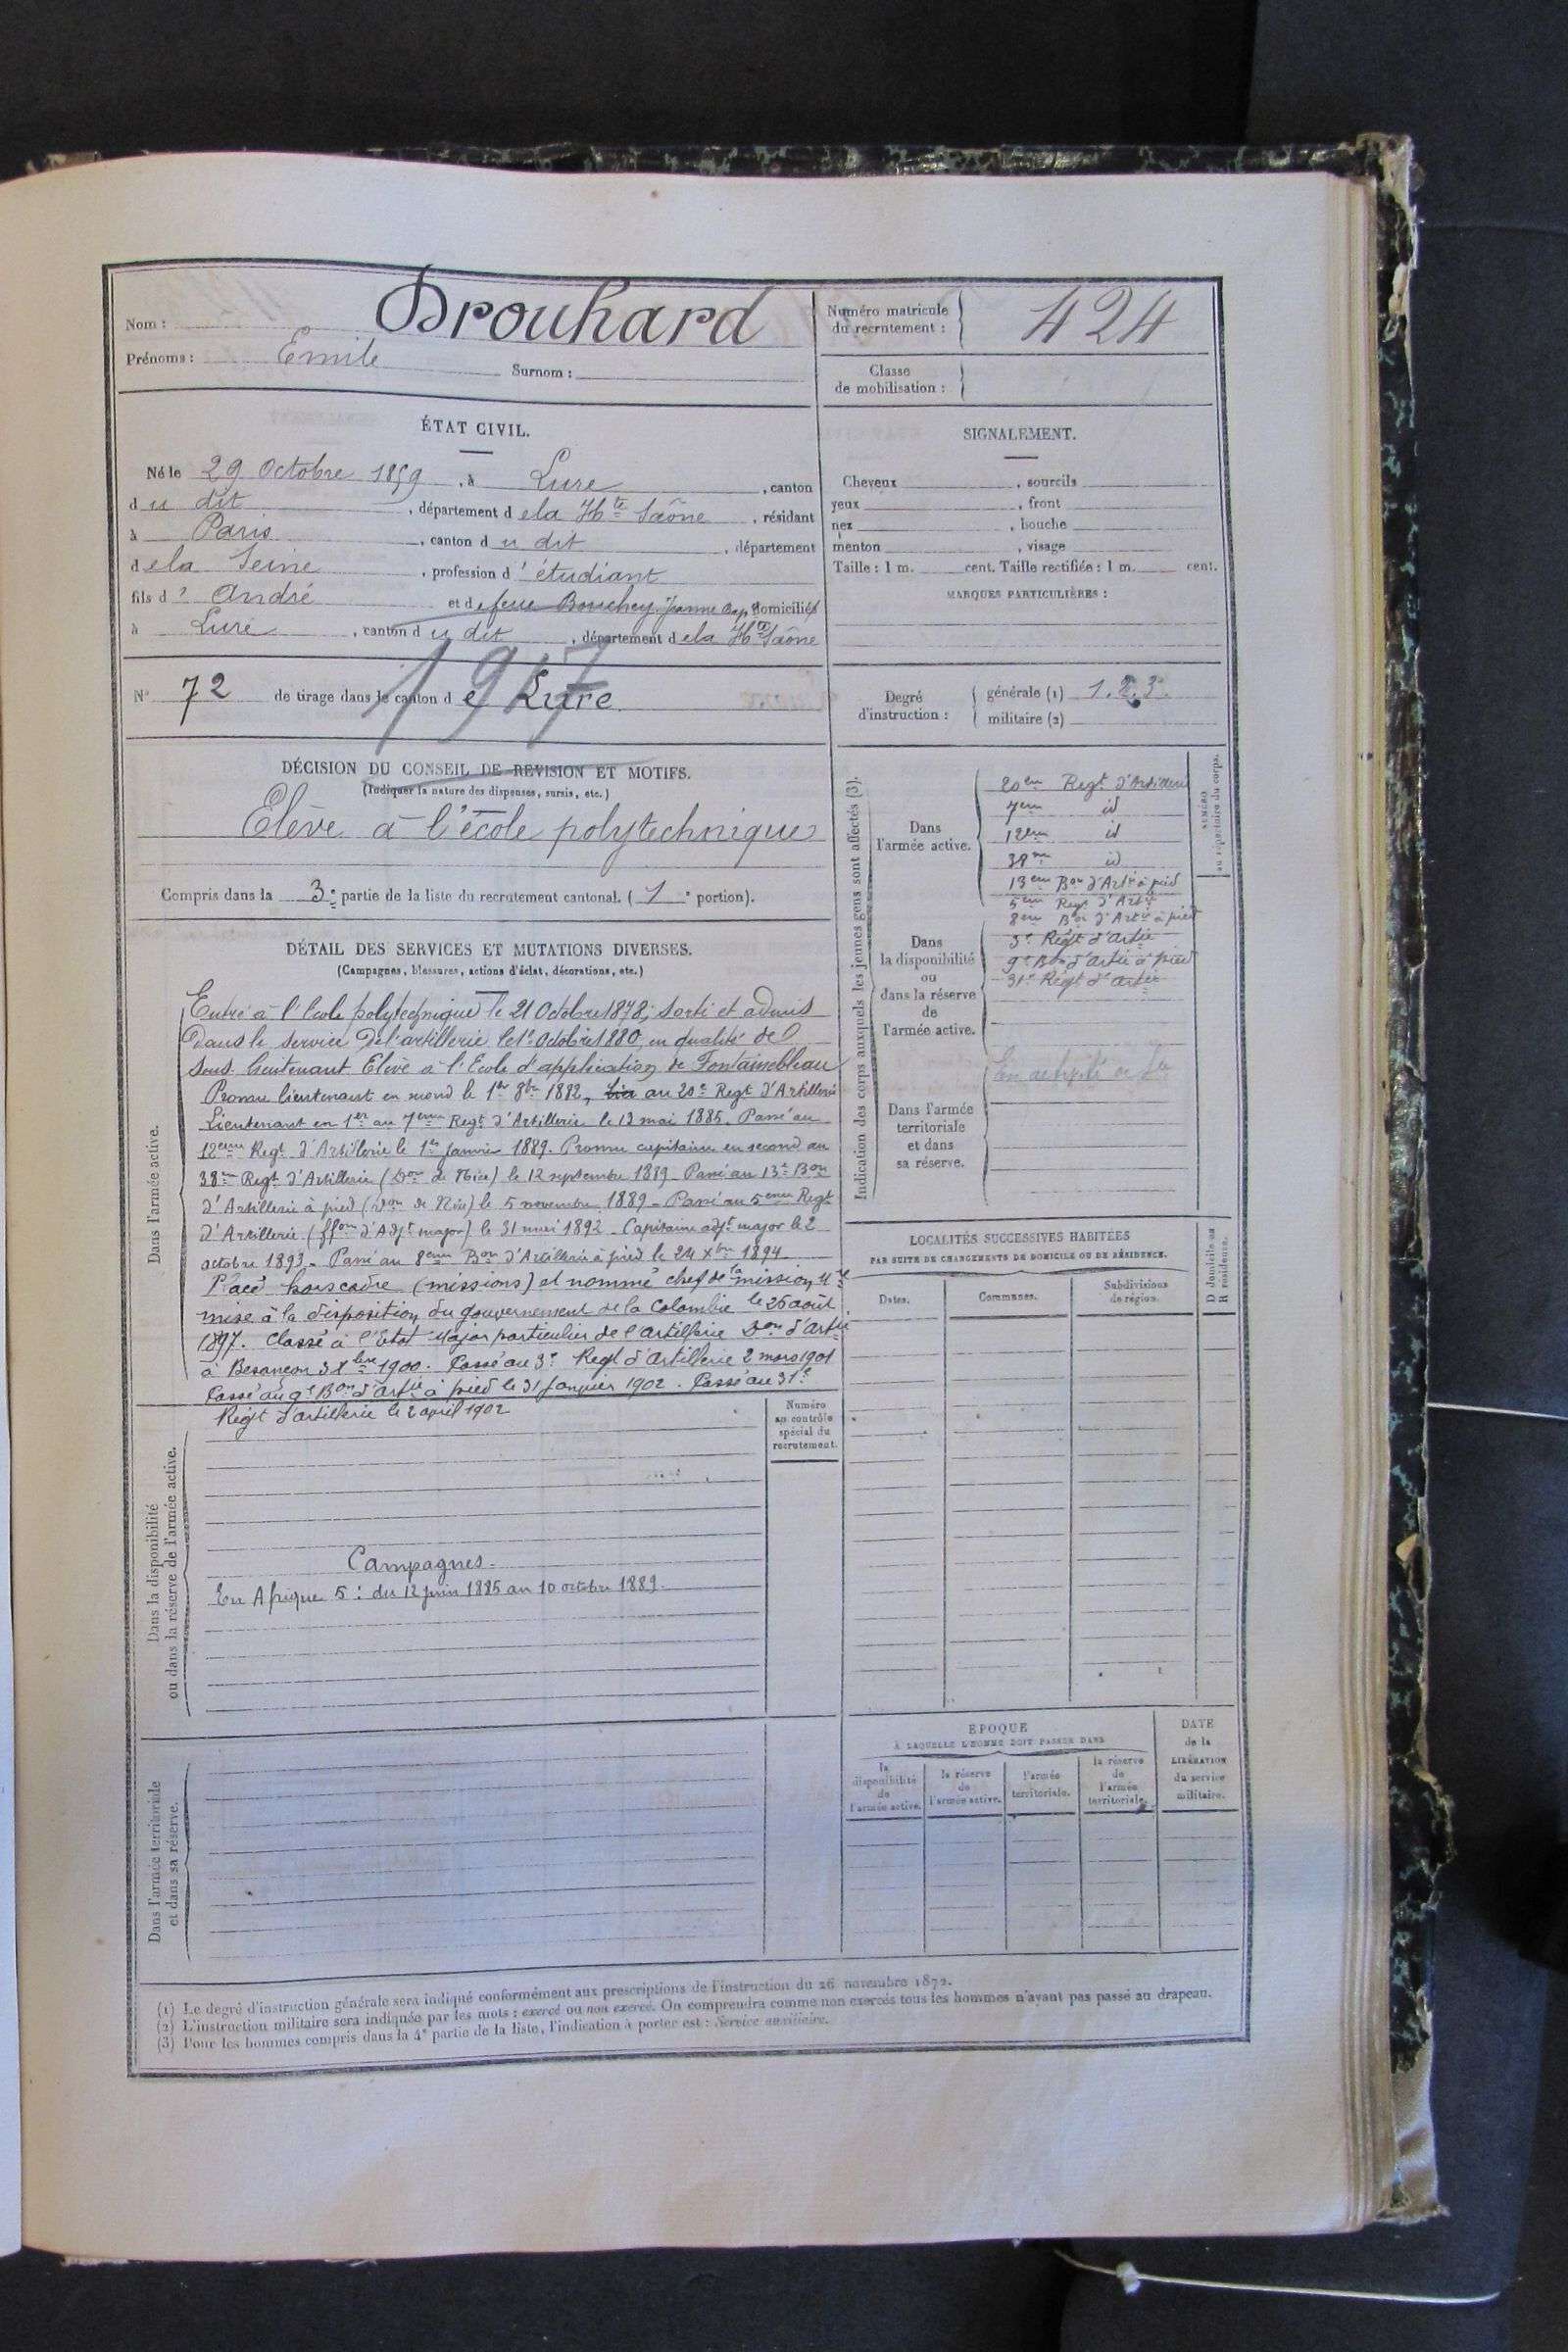 Nom : Drouhard
Prénoms : Emile Surnom :
Numéro matricule du recrutement : 424
Classe de mobilisation :
ÉTAT CIVIL.
Né le 29 Octobre 1859, à Lure, canton
du dit, département de la Hte Saône, résidant
à Paris, canton du dit, département
de la Seine, profession d'étudiant
fils d'André et de feue Bouchey Jeanne Bap, domiciliés
à Lure, canton du dit, département de la Hte Saône
N° 72 de tirage dans le canton de Lure
1917
DÉCISION DU CONSEIL DE REVISION ET MOTIFS.
(Indiquer la nature des dispenses, sursis, etc.)
Elève à l'école polytechnique
Compris dans la 3e partie de la liste du recrutement cantonal. (1e portion).
DÉTAIL DES SERVICES ET MUTATIONS DIVERSES.
(Campagnes, blessures, actions d'éclat, décorations, etc.)
Dans l'armée active.
Entré à l'Ecole polytechnique le 21 Octobre 1878; Sorti et admis
dans le service de l'artillerie le 1er Octobre 1880, en qualité de
Sous-lieutenant Elève à l'Ecole d'application de Fontainebleau
Promu lieutenant en second le 1er 8bre 1882, au 20e Regt d'Artillerie
Lieutenant en 1er au 7eme Regt d'Artillerie le 13 mai 1885. Passé au
12eme Regt d'Artillerie le 1er Janvier 1889. Promu capitaine en second au
38eme Regt d'Artillerie (Don de Nice) le 12 septembre 1889 - Passé au 13e Bon
d'Artillerie à pied (Don de Nice) le 5 novembre 1889 - Passé au 5eme Regt
d'Artillerie (ffon d'Adjt major) le 31 mai 1892 - Capitaine adjt major le 2
octobre 1893 - Passé au 8eme Bon d'Artillerie à pied le 24 Xbre 1894
Placé hors cadre (missions) et nommé chef de la mission Mre
mise à la disposition du gouvernement de la Colombie le 26 août
1897. Classé à l'Etat-Major particulier de l'artillerie Don d'Artie
à Besançon 3 Xbre 1900. Passé au 3e Regt d'Artillerie 2 mars 1901
Passé au 9e Bon d'Artie à pied le 31 janvier 1902. Passé au 31e
Regt d'artillerie le 2 avril 1902
Dans la disponibilité
ou dans la réserve de l'armée active.
Numéro au contrôle spécial du recrutement.
Campagnes.
En Afrique 5 : du 12 juin 1885 au 10 octobre 1889.
Dans l'armée territoriale
et dans sa réserve.
SIGNALEMENT.
Cheveux , sourcils
yeux , front
nez , bouche
menton , visage
Taille : 1 m. cent. Taille rectifiée : 1 m. cent.
MARQUES PARTICULIÈRES :
Degré d'instruction : générale (1) 1.2.3
militaire (2)
Indication des corps auxquels les jeunes gens sont affectés (3).
NUMÉRO au répertoire du corps.
Dans l'armée active.
20em Regt d'Artillerie
7em id
12em id
38em id
13em Bon d'Artie à pied
5em Regt d'Artie
8em Bon d'Artie à pied
Dans la disponibilité ou dans la réserve de l'armée active.
3e Régt d'Artie
9e Bon d'Artie à pied
31e Régt d'Artie
Dans l'armée territoriale et dans sa réserve.
LOCALITÉS SUCCESSIVES HABITÉES
PAR SUITE DE CHANGEMENTS DE DOMICILE OU DE RÉSIDENCE.
Dates. Communes. Subdivisions de région. D Domicile ou R résidence.
EPOQUE
À LAQUELLE L'HOMME DOIT PASSER DANS
la disponibilité de l'armée active. la réserve de l'armée active. l'armée territoriale. la réserve de l'armée territoriale.
DATE de la LIBÉRATION du service militaire.
(1) Le degré d'instruction générale sera indiqué conformément aux prescriptions de l'instruction du 26 novembre 1872.
(2) L'instruction militaire sera indiquée par les mots : exercé ou non exercé. On comprendra comme non exercés tous les hommes n'ayant pas passé au drapeau.
(3) Pour les hommes compris dans la 4e partie de la liste, l'indication à porter est : Service auxiliaire.